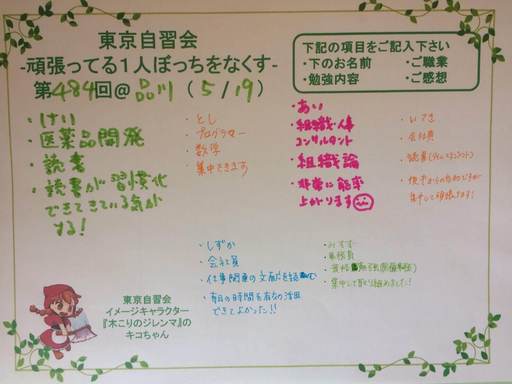 東京自習会
-頑張ってる1人ぼっちをなくす-
第484回@品川(5/19)
下記の項目をご記入下さい
・下のお名前 ・ご職業
・勉強内容 ・ご感想
・けい
・医薬品開発
・読書
・読書が習慣化
できてきている気が
する!
・とし
・プログラマー
・数学
・集中できます
・あい
・組織・人事
コンサルタント
・組織論
・非常に能率
上がります
・いつき
・会社員
・しずか
・会社員
・仕事関連の文献を読む
・毎日の時間を有効活用
できてよかった!!
・みすず
・事務員
・集中して取り組めました!!
東京自習会
イメージキャラクター
『木こりのジレンマ』の
キコちゃん